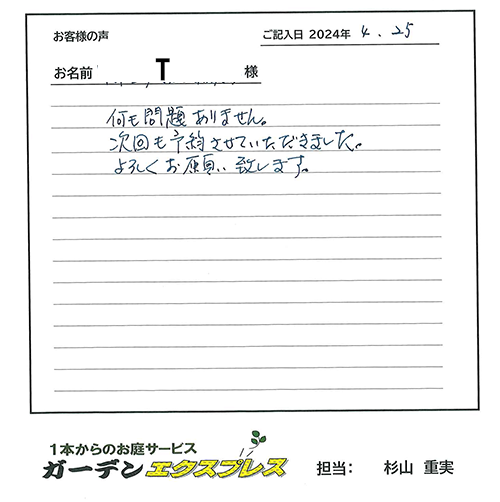 お客様の声
ご記入日 2024年 4.25
お名前 T 様
何も問題ありません。
次回も予約させていただきました。
よろしくお願い致します。
1本からのお庭サービス
ガーデンエクスプレス 担当： 杉山 重実